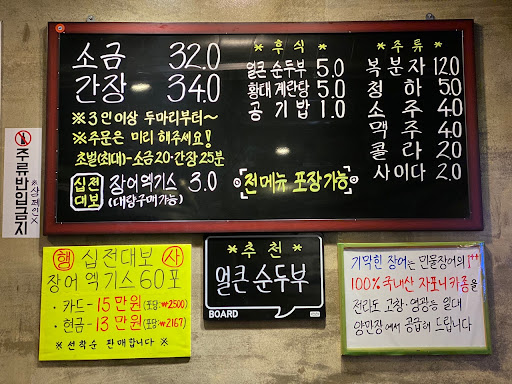 소금 32.0
간장 34.0
※3인이상 두마리부터~
※주문은 미리 해주세요!
초벌(최대)-소금20·간장25분
십전대보 장어엑기스 3.0
(대량구매가능)
*후식*
얼큰 순두부 5.0
황태 계란탕 5.0
공기밥 1.0
전메뉴 포장가능
*주류*
복분자 12.0
청하 5.0
소주 4.0
맥주 4.0
콜라 2.0
사이다 2.0
주류반입금지
행 십전대보 사
장어 엑기스 60포
·카드-15만원(포당:₩2500)
·현금-13만원(포당:₩2167)
※선착순 판매합니다※
*추천*
얼큰 순두부
BOARD
기막힌 장어는 민물장어의 1++
100% 국내산 자포니카종을
전라도 고창·영광등 일대
양만장에서 공급해 드립니다